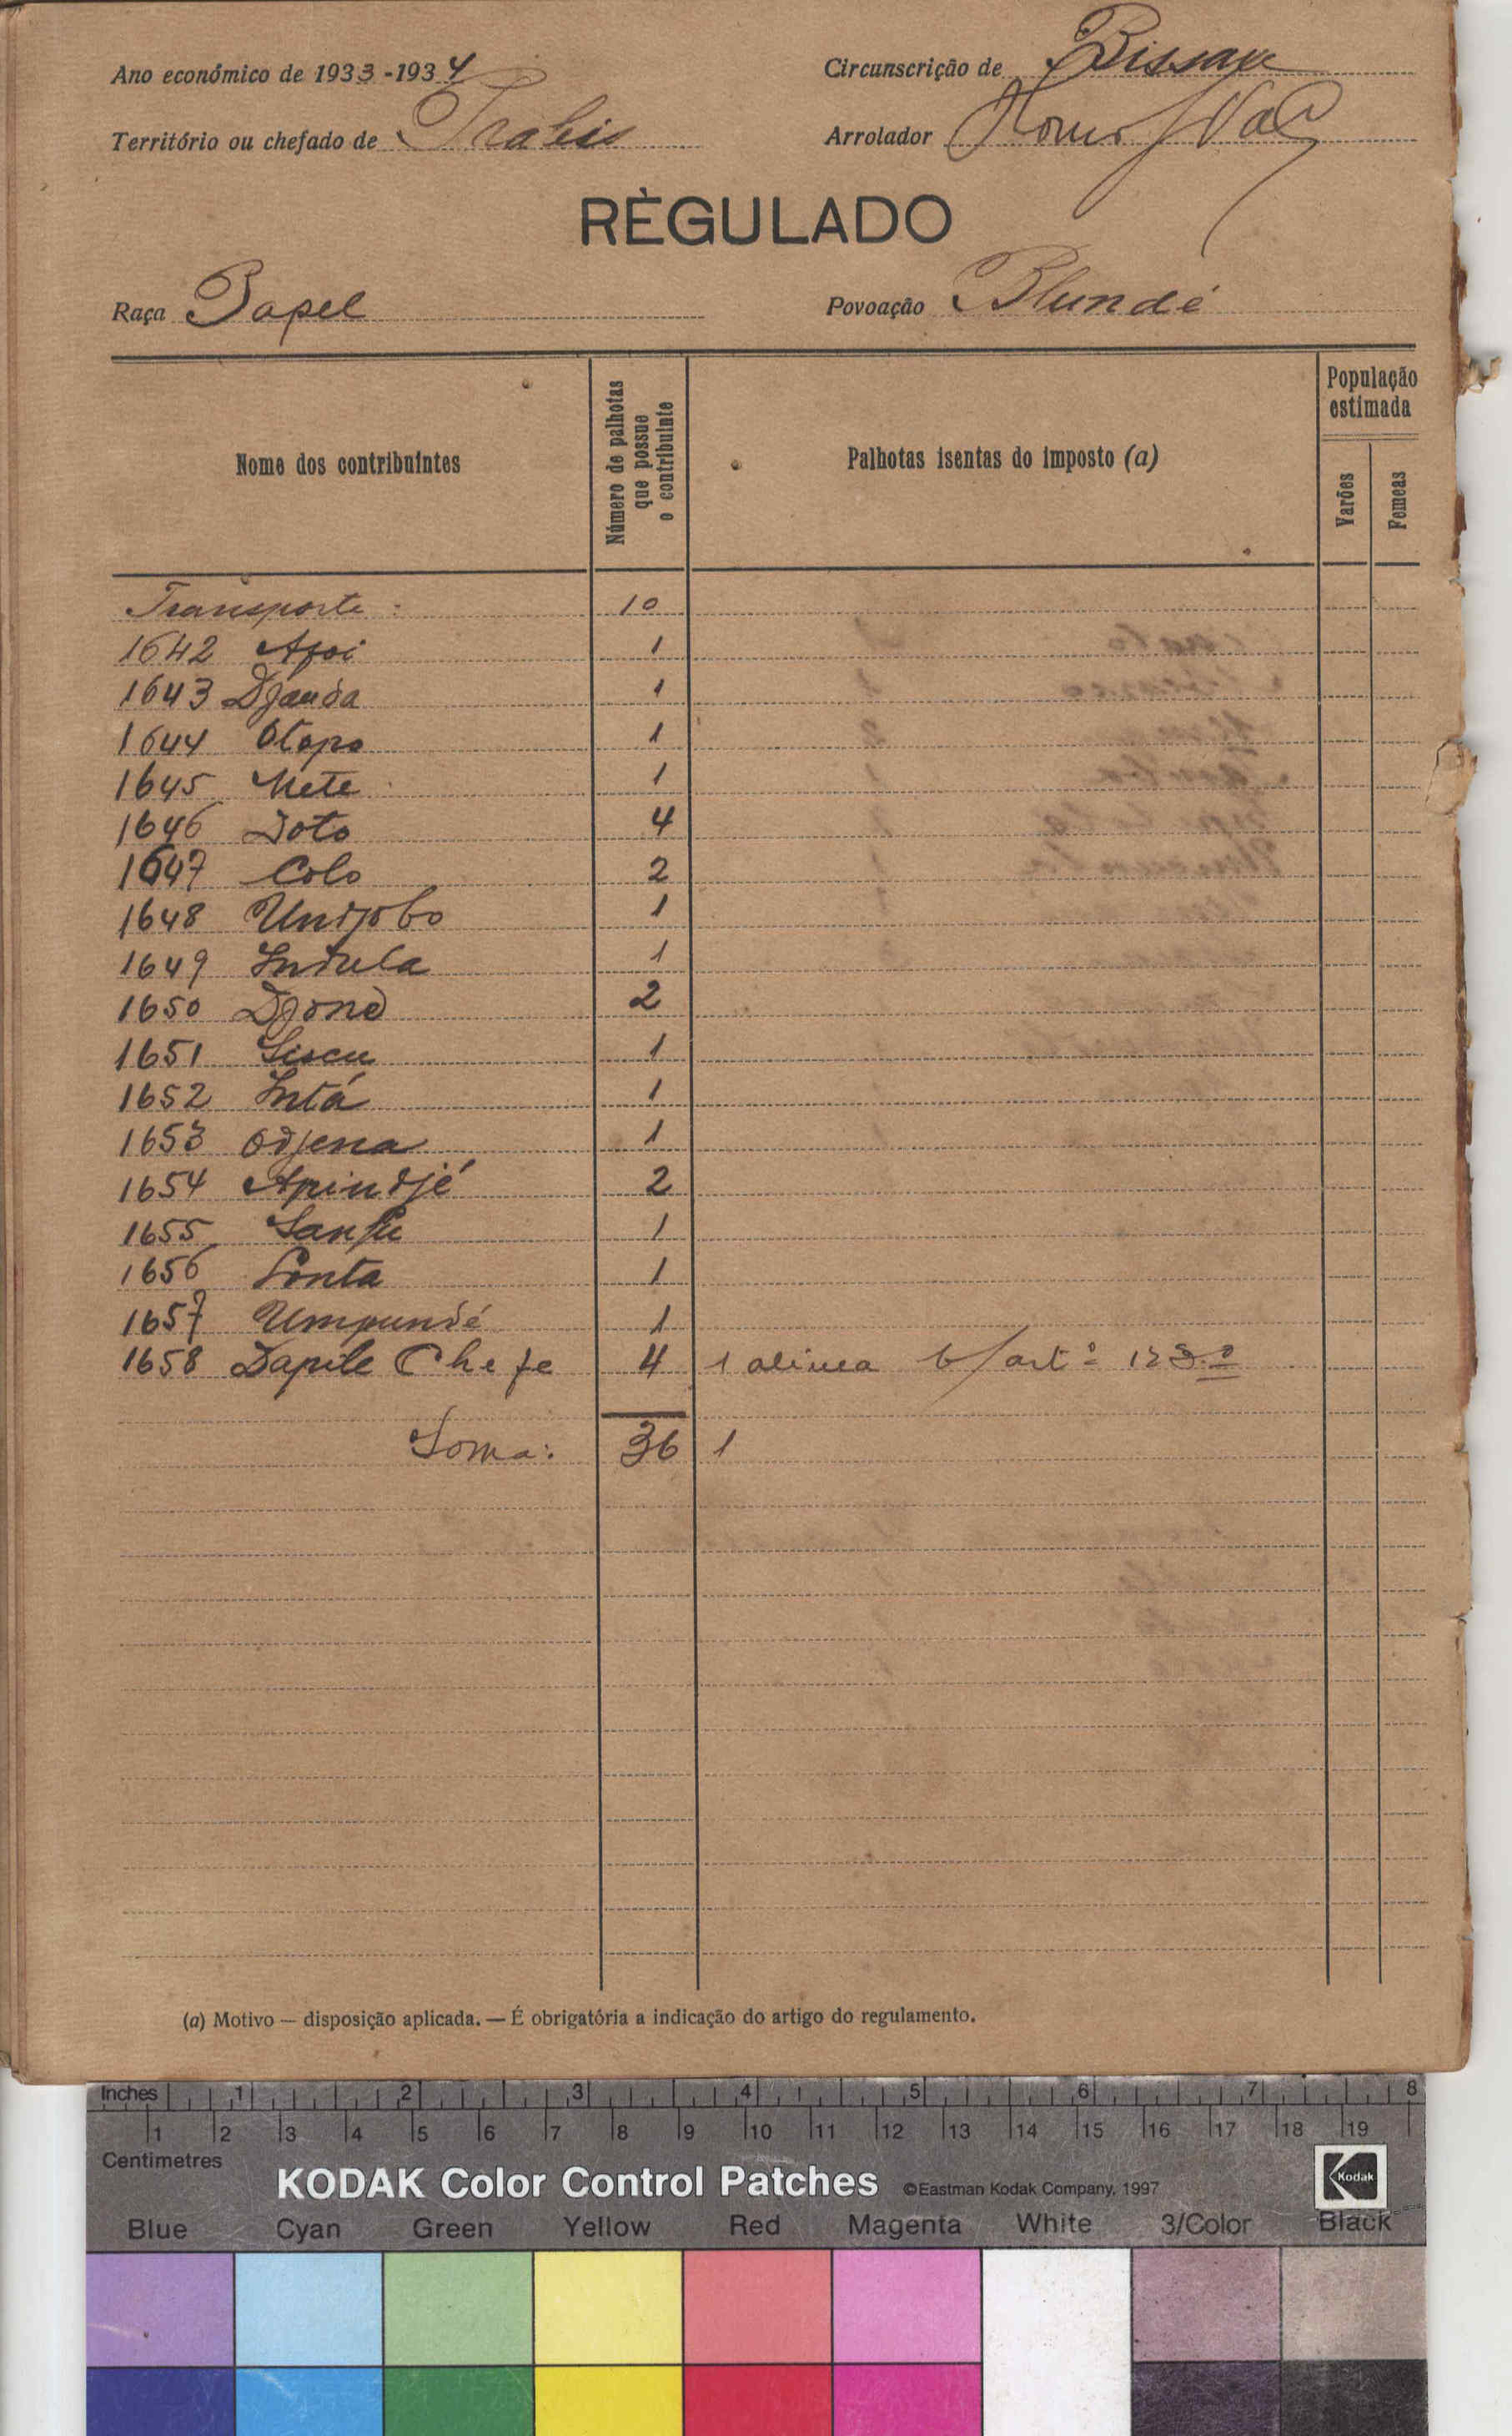 Ano económico de 1933-1934
Circunscrição de Bissau
Território ou chefado de
Arrolador
RÈGULADO
Raça Papel
Povoação Blundé
Nome dos contribuintes
Número de palhotas que possue o contribuinte
Palhotas isentas do imposto (a)
População estimada
Varões
Femeas
Transporte: 10
1642 Apoi 1
1643 Djanda 1
1644 Otopo 1
1645 Nete 1
1646 Doto 4
1647 Colo 2
1648 Undjobo 1
1649 Indula 1
1650 Djonó 2
1651 Siscu 1
1652 Intá 1
1653 Odjena 1
1654 Apindjé 2
1655 1
1656 1
1657 Umpundé 1
1658 Dapile Chefe 4 1 alinea b/art.º 123.º
Soma: 36 1
(a) Motivo — disposição aplicada. — É obrigatória a indicação do artigo do regulamento.
Inches 1 2 3 4 5 6 7 8
1 2 3 4 5 6 7 8 9 10 11 12 13 14 15 16 17 18 19
Centimetres
KODAK Color Control Patches ©Eastman Kodak Company, 1997 Kodak
Blue Cyan Green Yellow Red Magenta White 3/Color Black